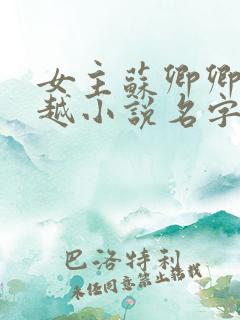 女主蘇卿卿
越小說名字
巴洛特利
未经同意禁止转载